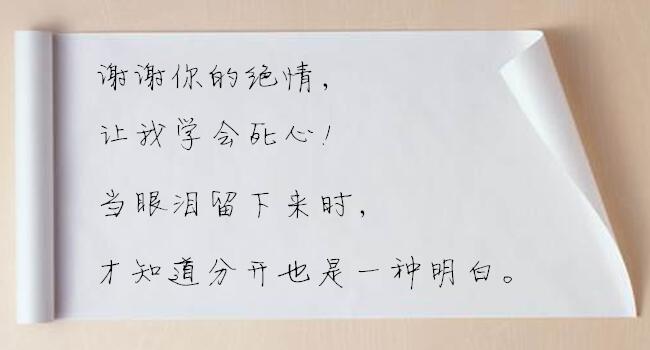 谢谢你的绝情，
让我学会死心！
当眼泪留下来时，
才知道分开也是一种明白。